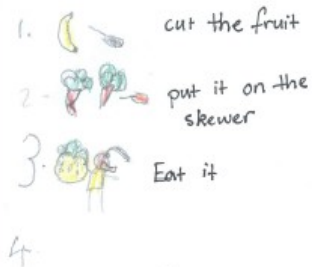 1. cut the fruit
2. put it on the
skewer
3. Eat it
4.